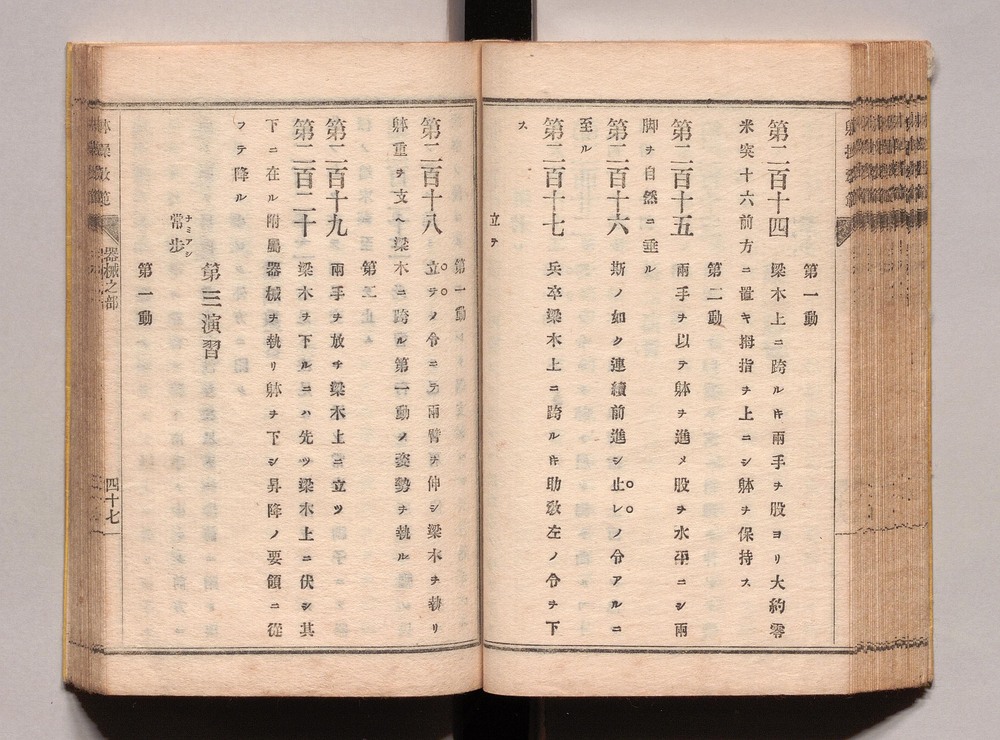 第一動
第二百十四　梁木上ニ跨ルキ兩手ヲ股ヨリ大約零
米突十六前方ニ置キ拇指ヲ上ニシ躰ヲ保持ス
第二動
第二百十五　兩手ヲ以テ躰ヲ進メ股ヲ水平ニシ兩
脚ヲ自然ニ垂ル
第二百十六　斯ノ如ク連續前進シ止レノ令アルニ
至ル
第二百十七　兵卒梁木上ニ跨ルキ助敎左ノ令ヲ下
ス
立テ
第一動
第二百十八　立テノ令ニテ兩臂ヲ伸シ梁木ヲ執リ
躰重ヲ支ヘ梁木ニ跨ル第一動ノ姿勢ヲ執ル
第二動
第二百十九　兩手ヲ放チ梁木上ニ立ツ
第二百二十　梁木ヲ下ルニハ先ツ梁木上ニ伏シ其
下ニ在ル附屬器械ヲ執リ躰ヲ下シ昇降ノ要領ニ從
フテ降ル
第三演習
常步
ナミアシ
第一動
器械之部
四十七